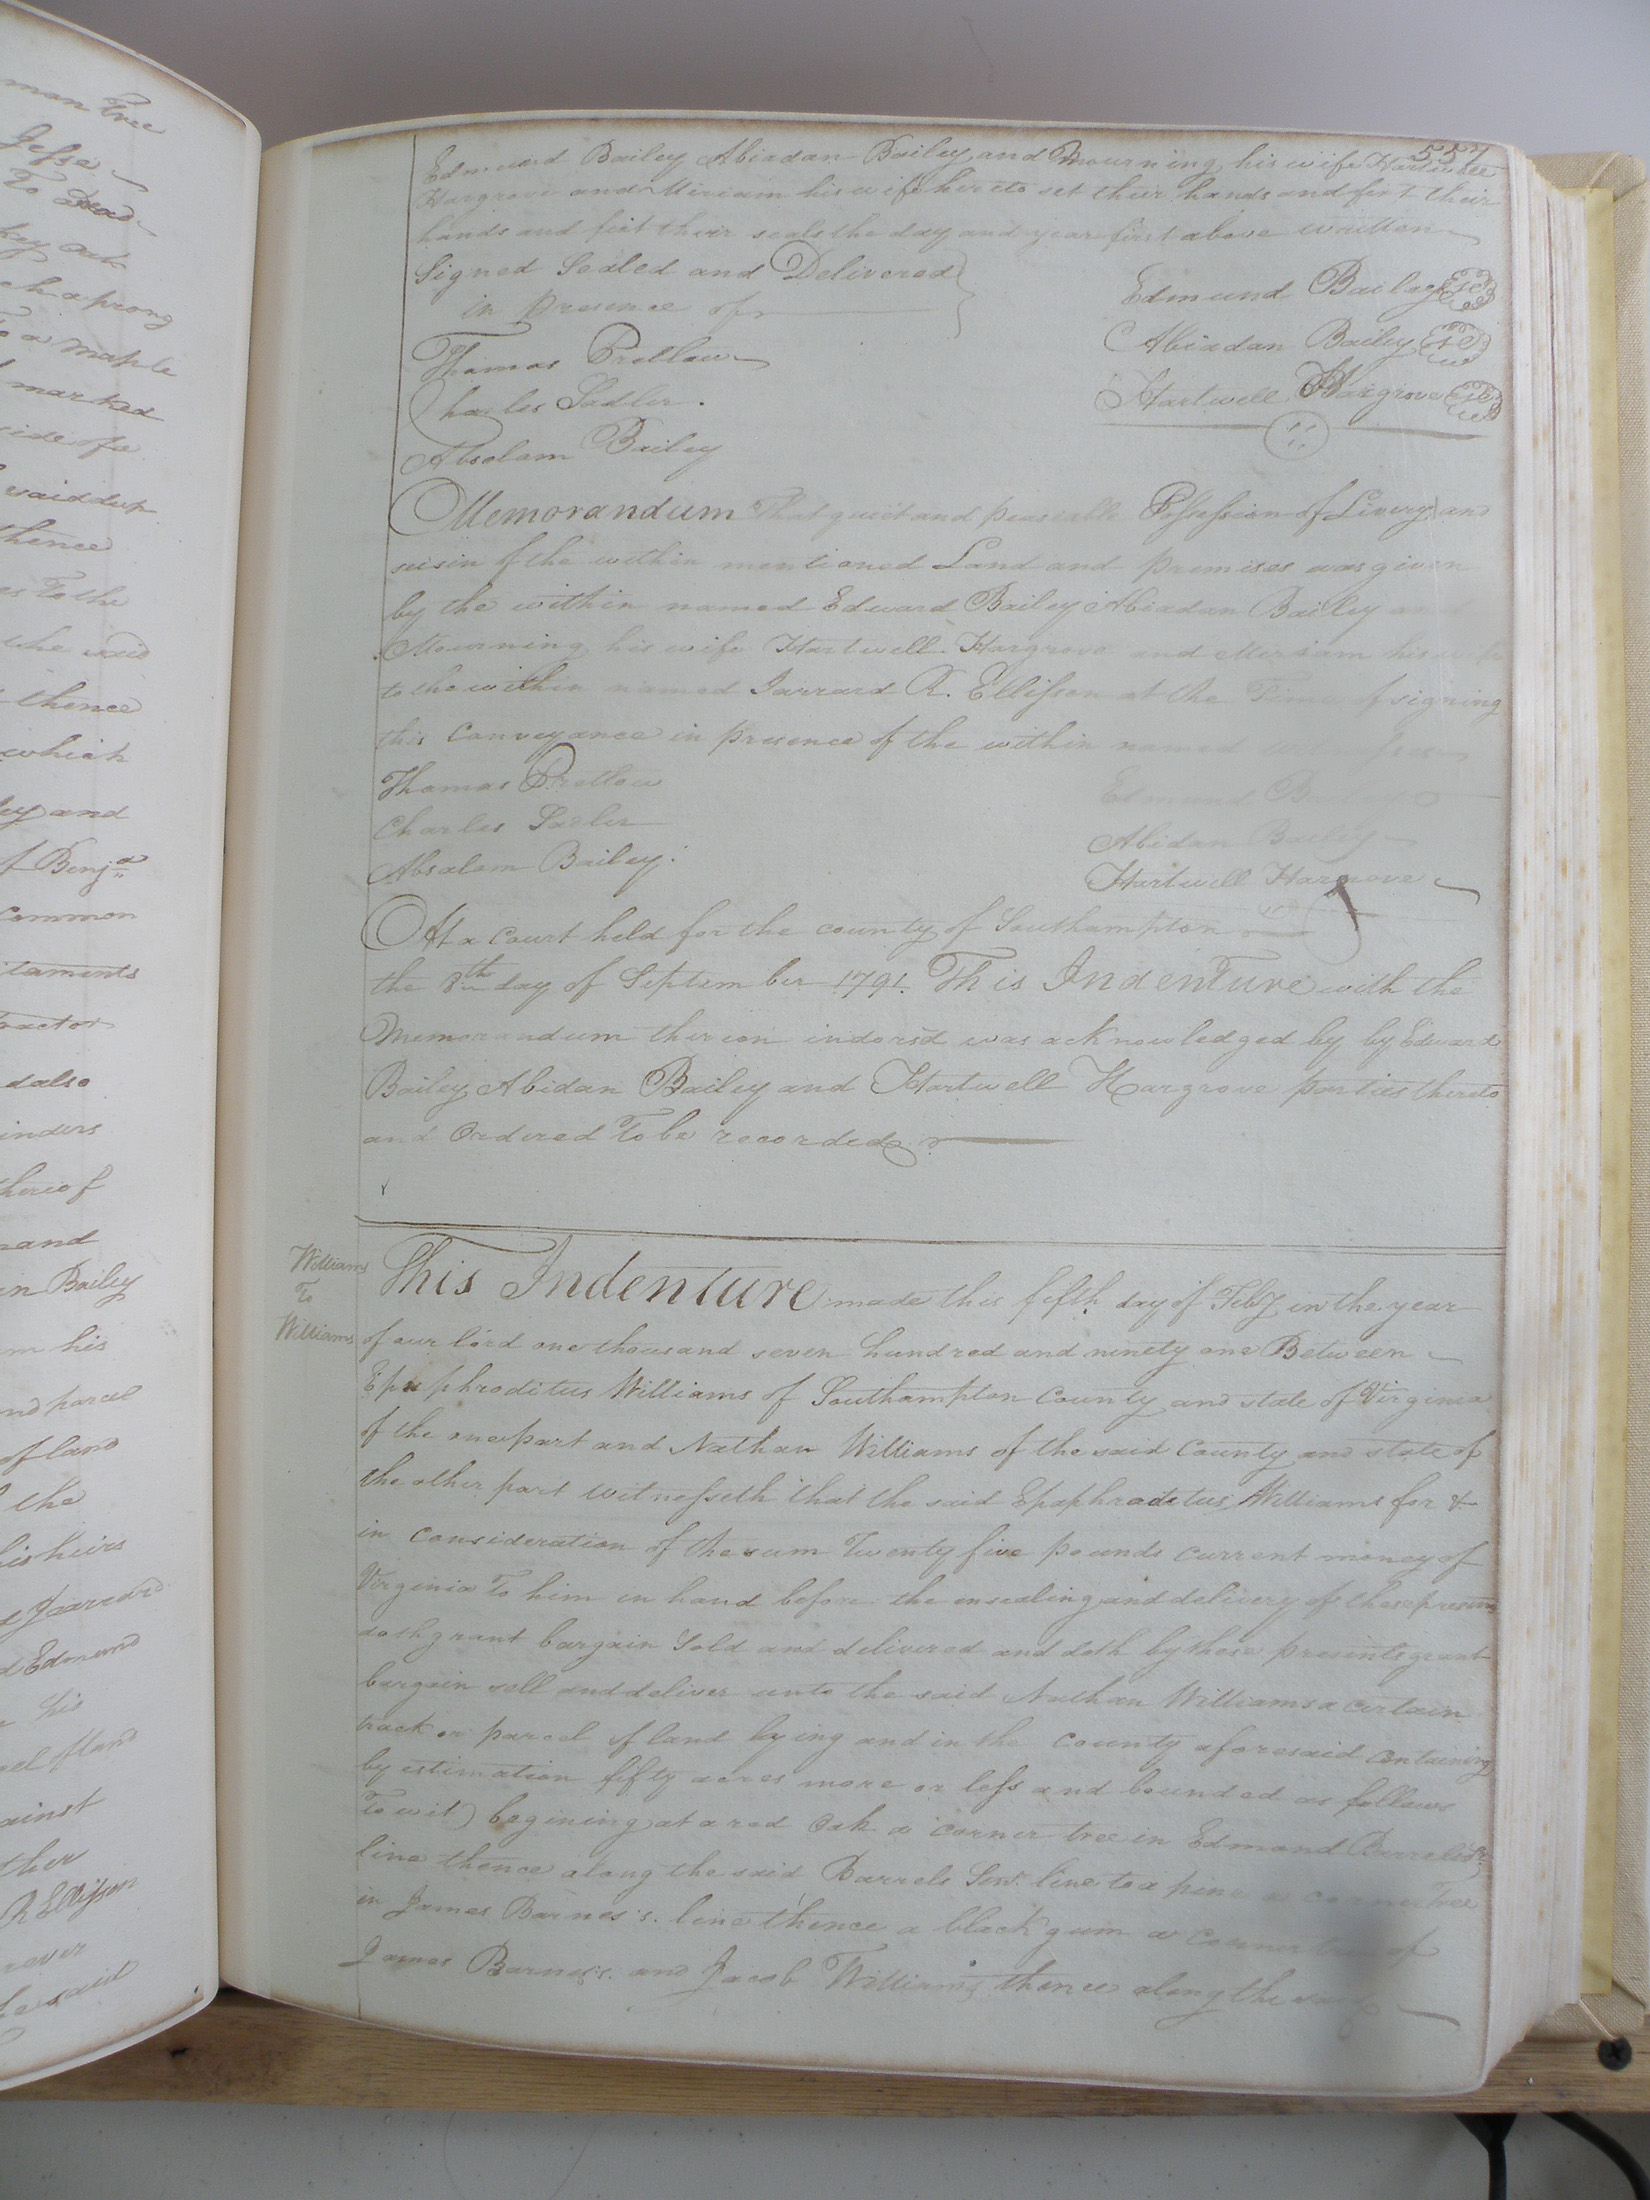 man Tree
Jesse
To Dead
key oak
ch a prong
To a maple
marked
side of a
said dup
thence
es To the
the said
thence
which
ley and
of Benja
common
itaments
ractor
d also
inders
thereof
hand
in Bailey
m his
nd parcel
of land
the
his heirs
d Jarrard
d Edmund
his
cel of land
ainst
ther
R Ellisson
rever
he said
557
Edmund Bailey Abiadan Bailey and Mourning his wife Hartwell
Hargrove and Miriam his wife hereto set their hands and fixt their
hands and fixt their seals the day and year first above written
Signed Sealed and Delivered
in presence of
Thomas Pretlow
Charles Sadler.
Absolam Bailey
Edmund Bailey
Abiadan Bailey
Hartwell Hargrove
Memorandum That quiet and peaceable Possession of Livery and
seisin of the within mentioned Land and premises was given
by the within named Edward Bailey Abiadan Bailey and
Mourning his wife Hartwell Hargrove and Miriam his wife
to the within named Jarrard R. Ellisson at the Time of signing
this Conveyance in presence of the within named
Thomas Pretlow
Charles Sadler
Absalom Bailey
Edmund Bailey
Abidan Bailey
Hartwell Hargrove
At a Court held for the county of Southampton
the 8th day of September 1791. This Indenture with the
Memorandum thereon indorsd was acknowledged by by Edward
Bailey Abidan Bailey and Hartwell Hargrove parties thereto
and Ordered To be recorded
Williams
To
Williams
This Indenture made this fifth day of Feby in the year
of our lord one thousand seven hundred and ninety one Between
Epaphroditus Williams of Southampton County and state of Virginia
of the one part and Nathan Williams of the said County and state of
the other part Witnesseth that the said Epaphroditus Williams for &
in Consideration of the sum Twenty five pounds Current money of
Virginia To him in hand before the ensealing and delivery of these presents
doth grant bargain Sold and delivered and doth by these presents grant
bargain sell and deliver unto the said Nathan Williams a certain
track or parcel of land lying and in the County aforesaid Containing
by estimation fifty acres more or less and bounded as follows
To wit) begining at a red Oak a corner tree in Edmond Barrels Sr.
line thence along the said Barrels Senr. line to a pine a corner Tree
in James Barnes's. line thence a black gum a corner tree of
James Barnes's. and Jacob Williams thence along the said